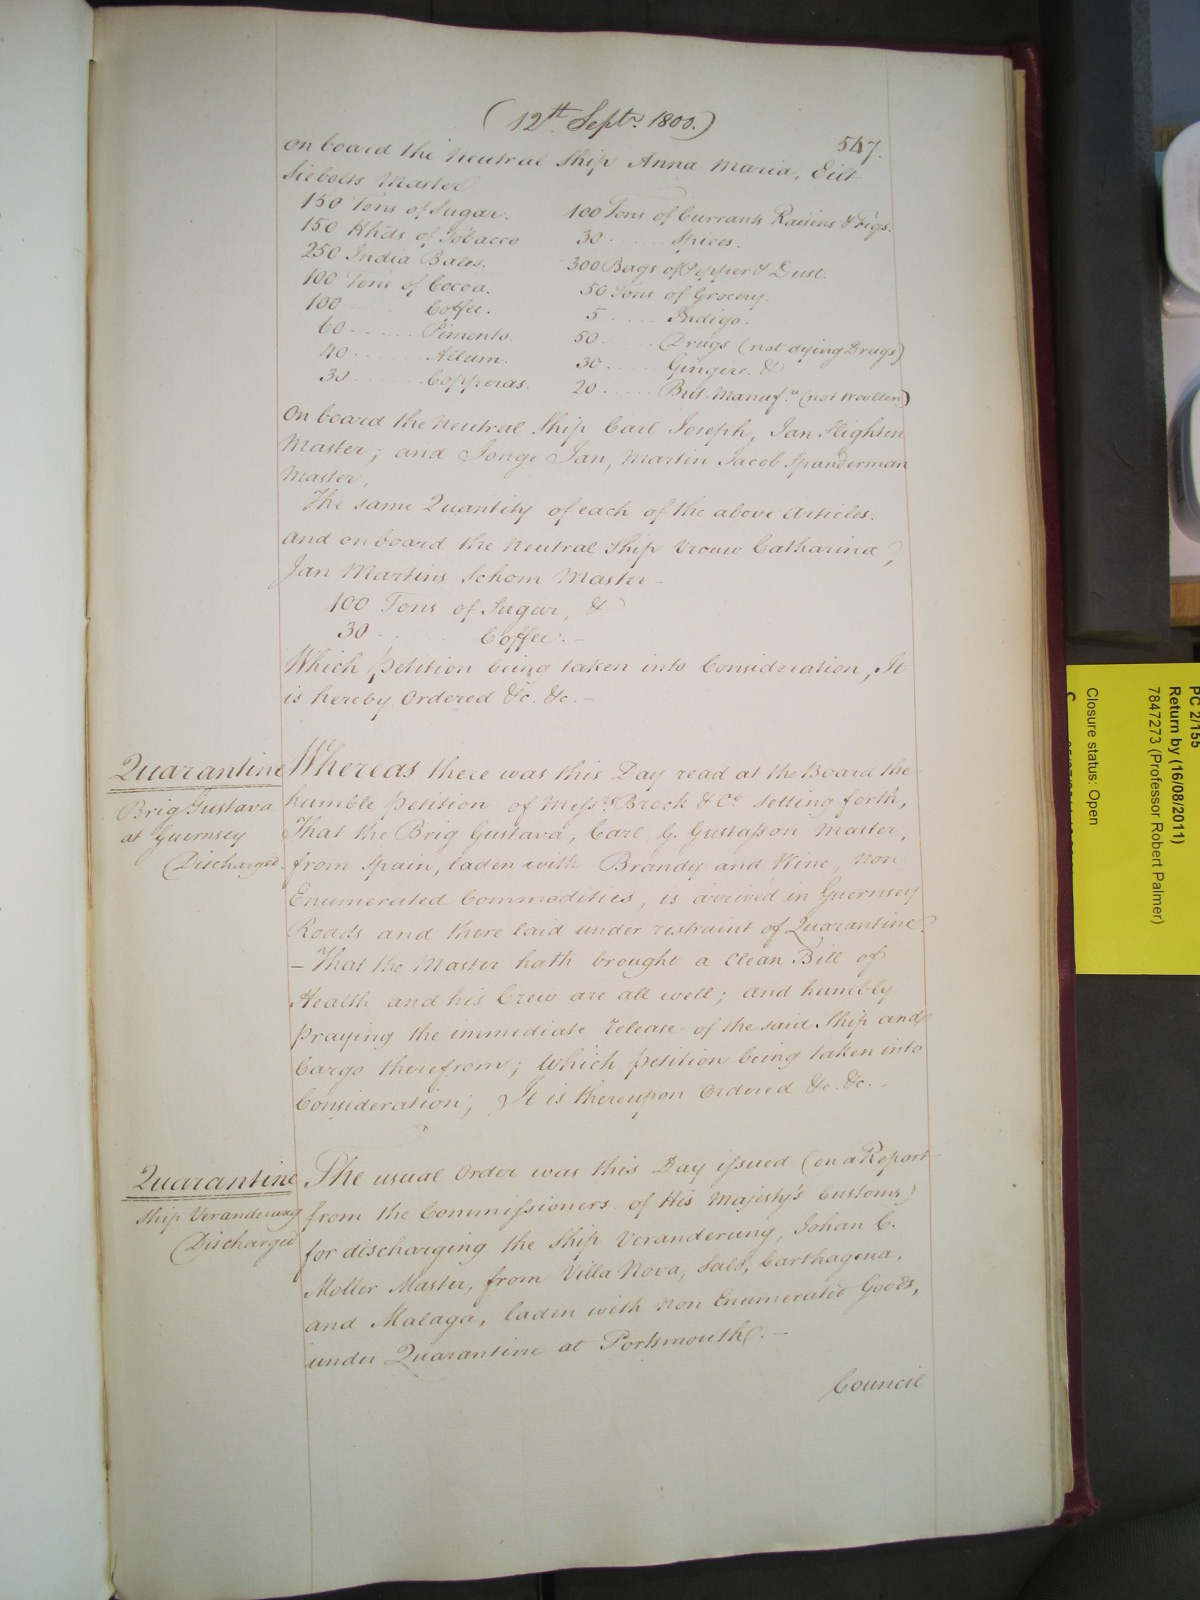 (12th. Septr. 1800.)
547.
on board the Neutral Ship Anna Maria, Eilt
Siebolts Master
150 Tons of Sugar.
150 Hhds of Tobacco
250 India Bales.
100 Tons of Cocoa.
100 Coffee.
60 ..... Pimento.
40 ..... Allum.
30 .... Copperas.
100 Tons of Currants Raisins & Figs.
30 ..... Spices.
300 Bags of Pepper & Dust.
50 Tons of Grocery.
5 ..... Indigo.
50 ..... Drugs (not dying Drugs)
30 ..... Ginger. &
20 ..... Brit. Manufrs. (not Woollen)
on board the Neutral Ship Carl Joseph, Jan
Master; and Jonge Jan, Martin Jacob Spanderman
Master,
The same Quantity of each of the above Articles.
and on board the Neutral Ship Vrouw Catharina,
Jan Martins Schom Master -
100 Tons of Sugar, &
30 Coffee. -
Which Petition being taken into Consideration, It
is hereby Ordered &c. &c. -
Quarantine
Brig Gustava
at Guernsey
(Discharged.
Whereas there was this Day read at the Board the
humble Petition of Messrs. Brock & Co. setting forth,
That the Brig Gustava, Carl G. Gustafson Master,
from Spain, laden with Brandy and Wine, Non
Enumerated Commodities, is arrived in Guernsey
Roads and there laid under restraint of Quarantine
- That the Master hath brought a Clean Bill of
Health and his Crew are all well; and humbly
Praying the immediate release of the said Ship and
Cargo therefrom; Which Petition being taken into
Consideration, It is thereupon Ordered &c. &c. -
Quarantine
Ship Veranderung
(Discharged
The usual Order was this Day issued (on a Report
from the Commissioners of His Majesty's Customs)
for discharging the Ship Veranderung, Johan C.
Moller Master, from Villa Nova, Salo, Carthagena,
and Malaga, laden with Non Enumerated Goods,
under Quarantine at Portsmouth. -
Council
PC 2/155
Return by (16/08/2011)
7847273 (Professor Robert Palmer)
Closure status: Open